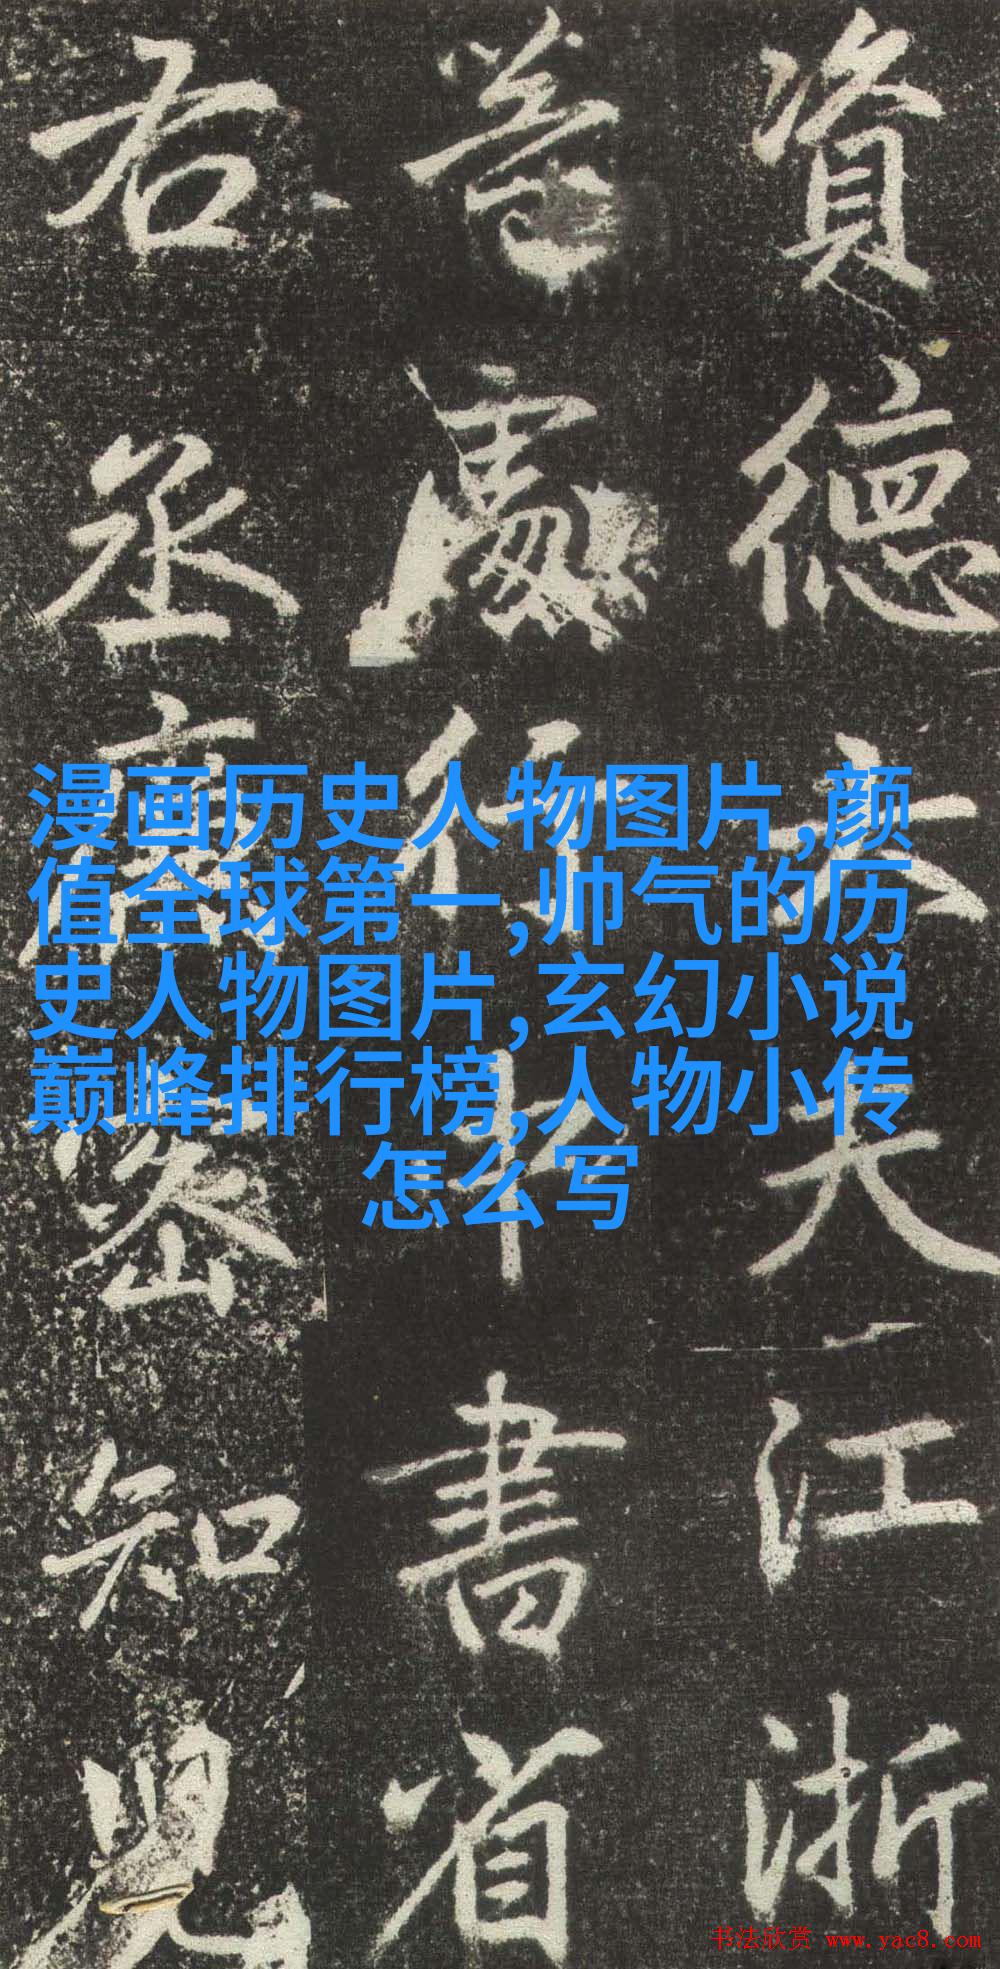 資德大夫江浙
等處行中書省
右丞廉密知兒
漫画历史人物图片,颜
值全球第一,帅气的历
史人物图片,玄幻小说
巅峰排行榜,人物小传
怎么写
书法欣赏 www.yac8.com